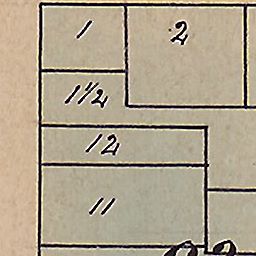 1 2
1 1/2
12
11